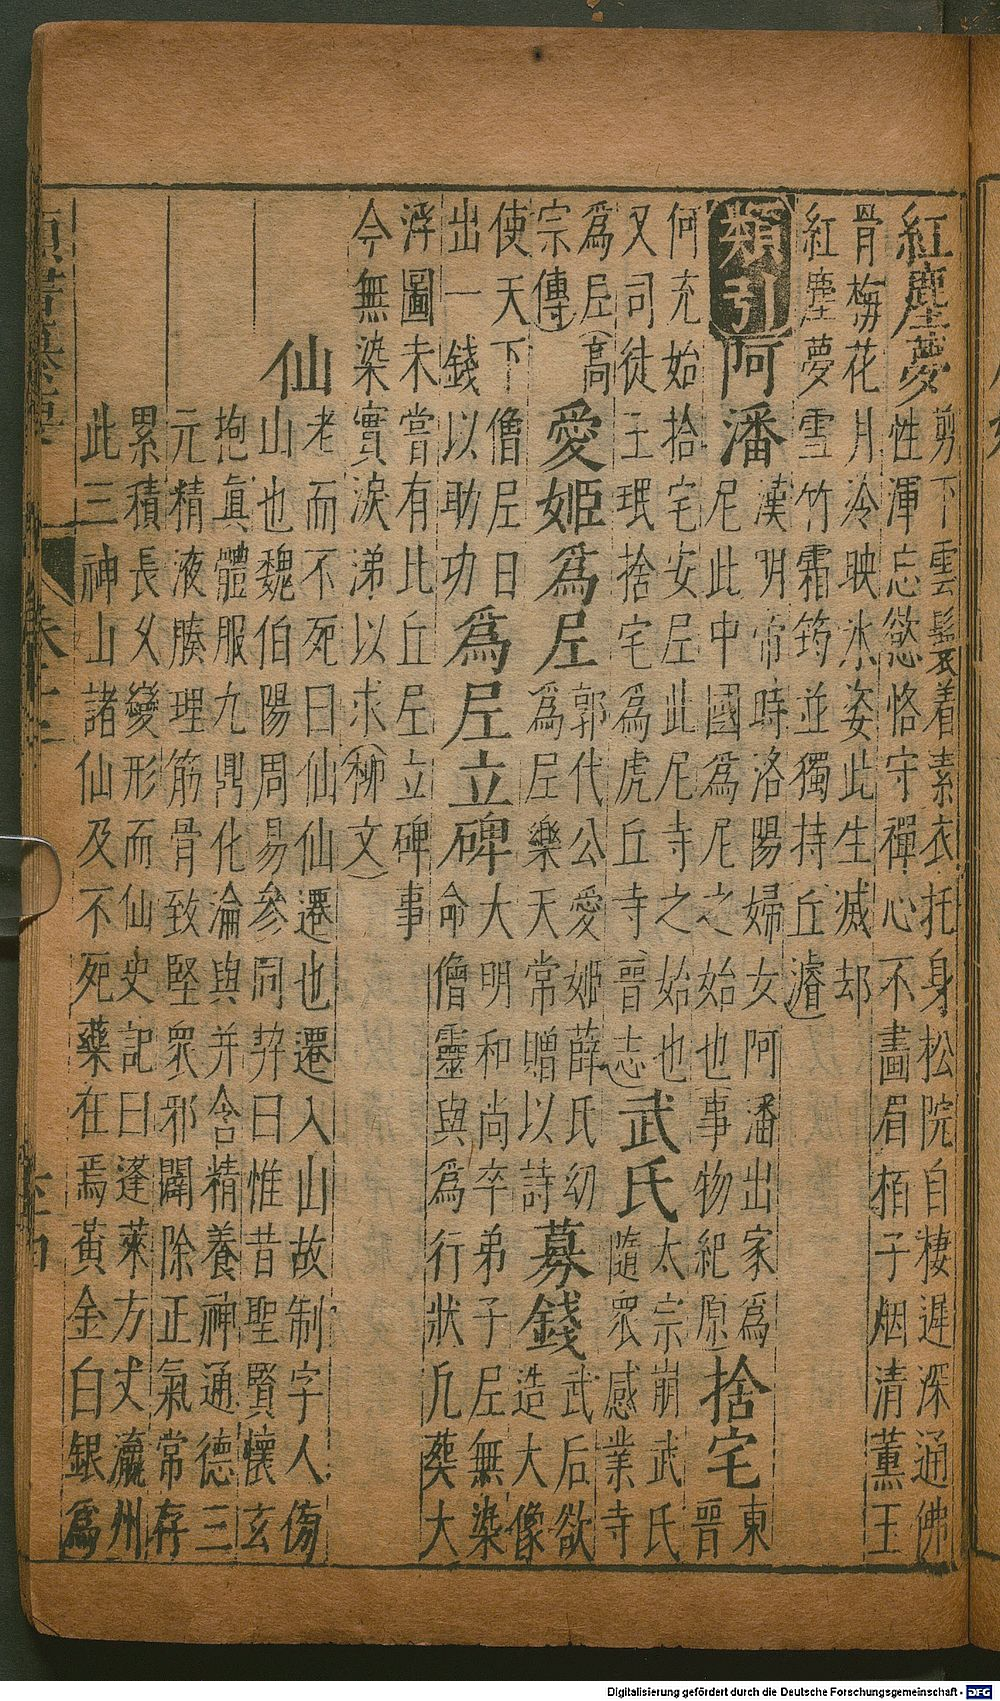 紅塵夢
剪下雲鬟着素衣托身松院自棲遲深通佛
性渾忘慾恪守禪心不畫眉栢子烟清薰玉
骨梅花月冷映氷姿此生滅却
紅塵夢雪竹霜筠並獨持丘濬
類引
阿潘
漢明帝時洛陽婦女阿潘出家為
尼此中國為尼之始也事物紀原
捨宅
東
晉
何充始拾宅安尼此尼寺之始也
又司徒王珉捨宅為虎丘寺晉志
武氏
太宗崩武氏
隨眾感業寺
為尼高
宗傳
愛姬為尼
郭代公愛姬薛氏幼
為尼樂天常贈以詩
募錢
武后欲
造大像
使天下僧尼日
出一錢以助功
為尼立碑
大明和尚卒弟子尼無染
命僧靈與為行狀凡葬大
浮圖未嘗有比丘尼立碑事
今無染實淚涕以求柳文
仙
老而不死曰仙仙遷也遷入山故制字人傍
山也魏伯陽周易參同契曰惟昔聖賢懷玄
抱真體服九鼎化淪與并含精養神通德三
元精液腠理筋骨致堅眾邪闢除正氣常存
累積長乆變形而仙史記曰蓬萊方丈瀛州
此三神山諸仙及不死藥在焉黃金白銀為
Digitalisierung gefördert durch die Deutsche Forschungsgemeinschaft - DFG